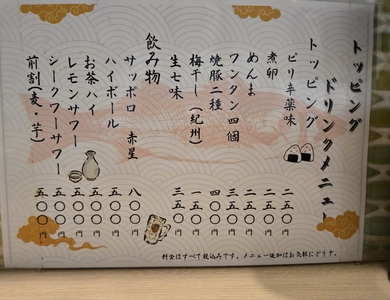 トッピング
ドリンクメニュー
トッピング
ピリ辛薬味 二五〇円
煮卵
めんま
ワンタン四個
焼豚二種
梅干し(紀州) 一五〇円
生七味
飲み物
サッポロ 赤星 八〇〇円
ハイボール 五〇〇円
お茶ハイ 五〇〇円
レモンサワー 五〇〇円
シークワーサワー 五〇〇円
前割(麦・芋) 五〇〇円
料金はすべて税込みです。メニュー追加はお気軽にどうぞ。